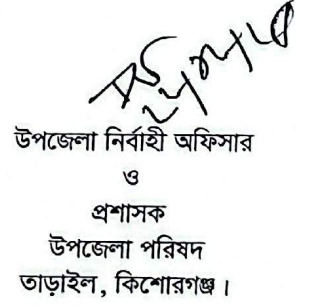 উপজেলা নির্বাহী অফিসার
ও
প্রশাসক
উপজেলা পরিষদ
তাড়াইল, কিশোরগঞ্জ।